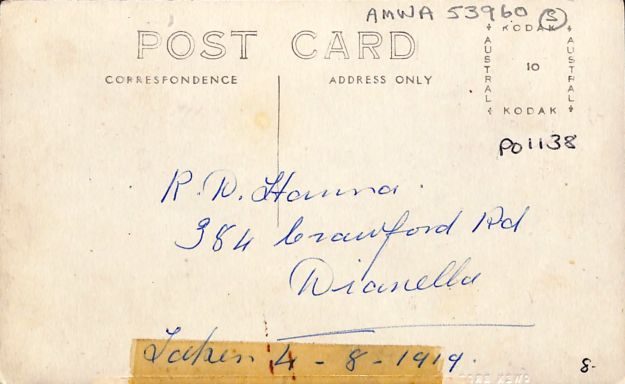 AMWA 53960 (3)
POST CARD
CORRESPONDENCE
ADDRESS ONLY
KODAK
AUSTRAL
10
AUSTRAL
KODAK
P01138
R. D. Hanna.
384 Crawford Rd
Dianella
Taken 4 - 8 - 1919.
8-